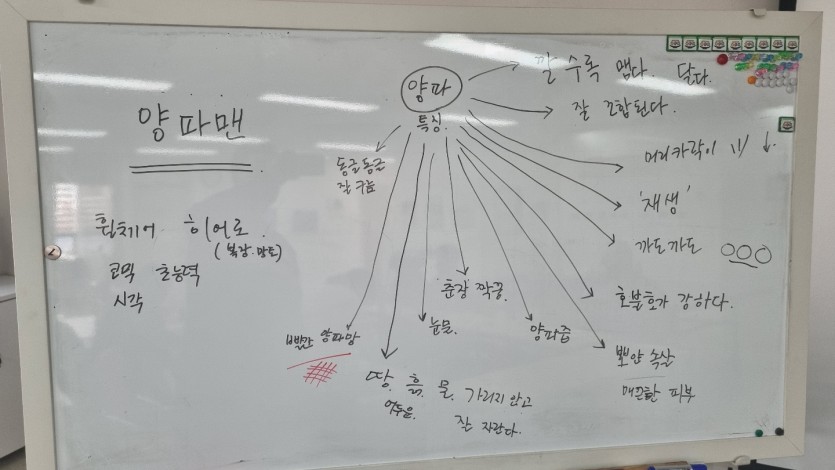 양파맨
휠체어 히어로.
(복장.망토)
코믹 초능력
시각
양파
특징.
깔수록 맵다. 달다.
잘 조합된다.
머리카락이
'재생'
까도까도
호불호가 강하다.
뽀얀 속살
매끈한 피부
양파즙
'춘장' 짝꿍.
눈물.
땅. 흙. 물. 가리지 않고
어두운.
잘 자란다.
빨간 양파망
동글동글
잘 구름